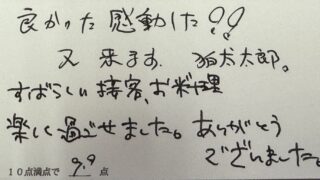 良かった感動した!!
又来ます。狛犬太郎。
すばらしい接客、お料理
楽しく過ごせました。ありがとう
ございました。
10点満点で 9.9 点